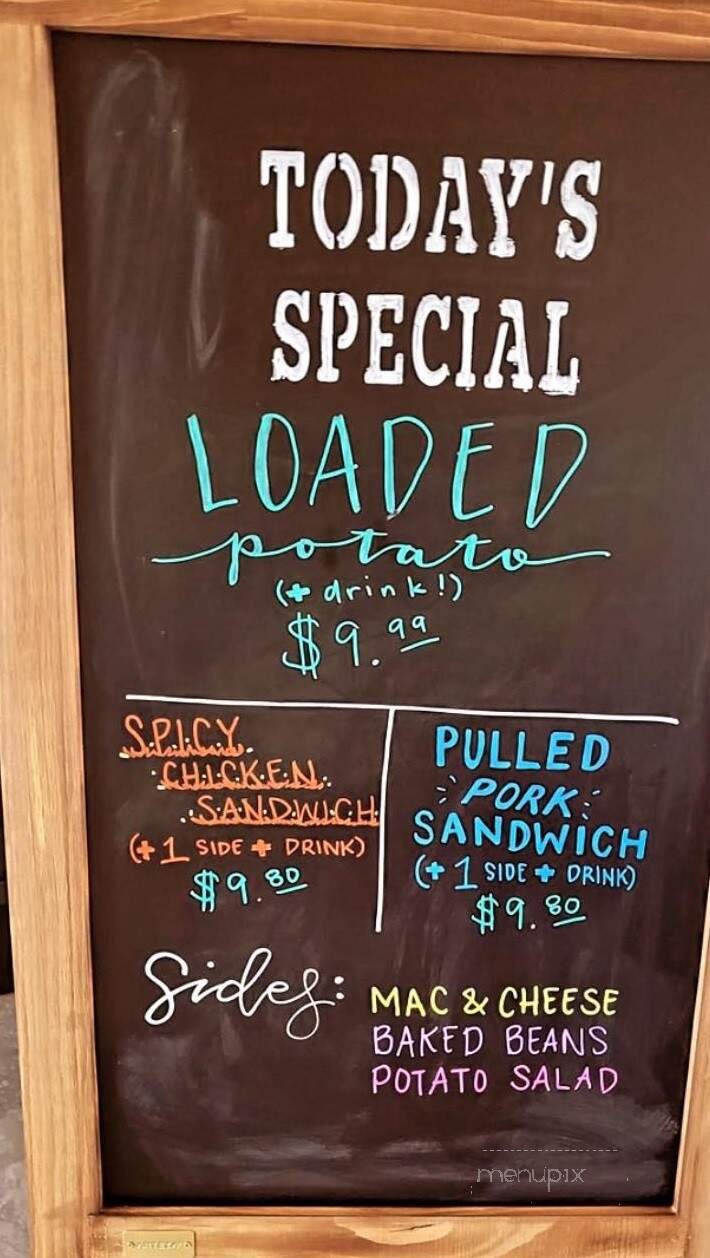 TODAY'S
SPECIAL
LOADED
potato
(+ drink!)
$9.99
SPICY
CHICKEN
SANDWICH
(+ 1 SIDE + DRINK)
$9.80
PULLED
PORK
SANDWICH
(+ 1 SIDE + DRINK)
$9.80
Sides:
MAC & CHEESE
BAKED BEANS
POTATO SALAD
menupix